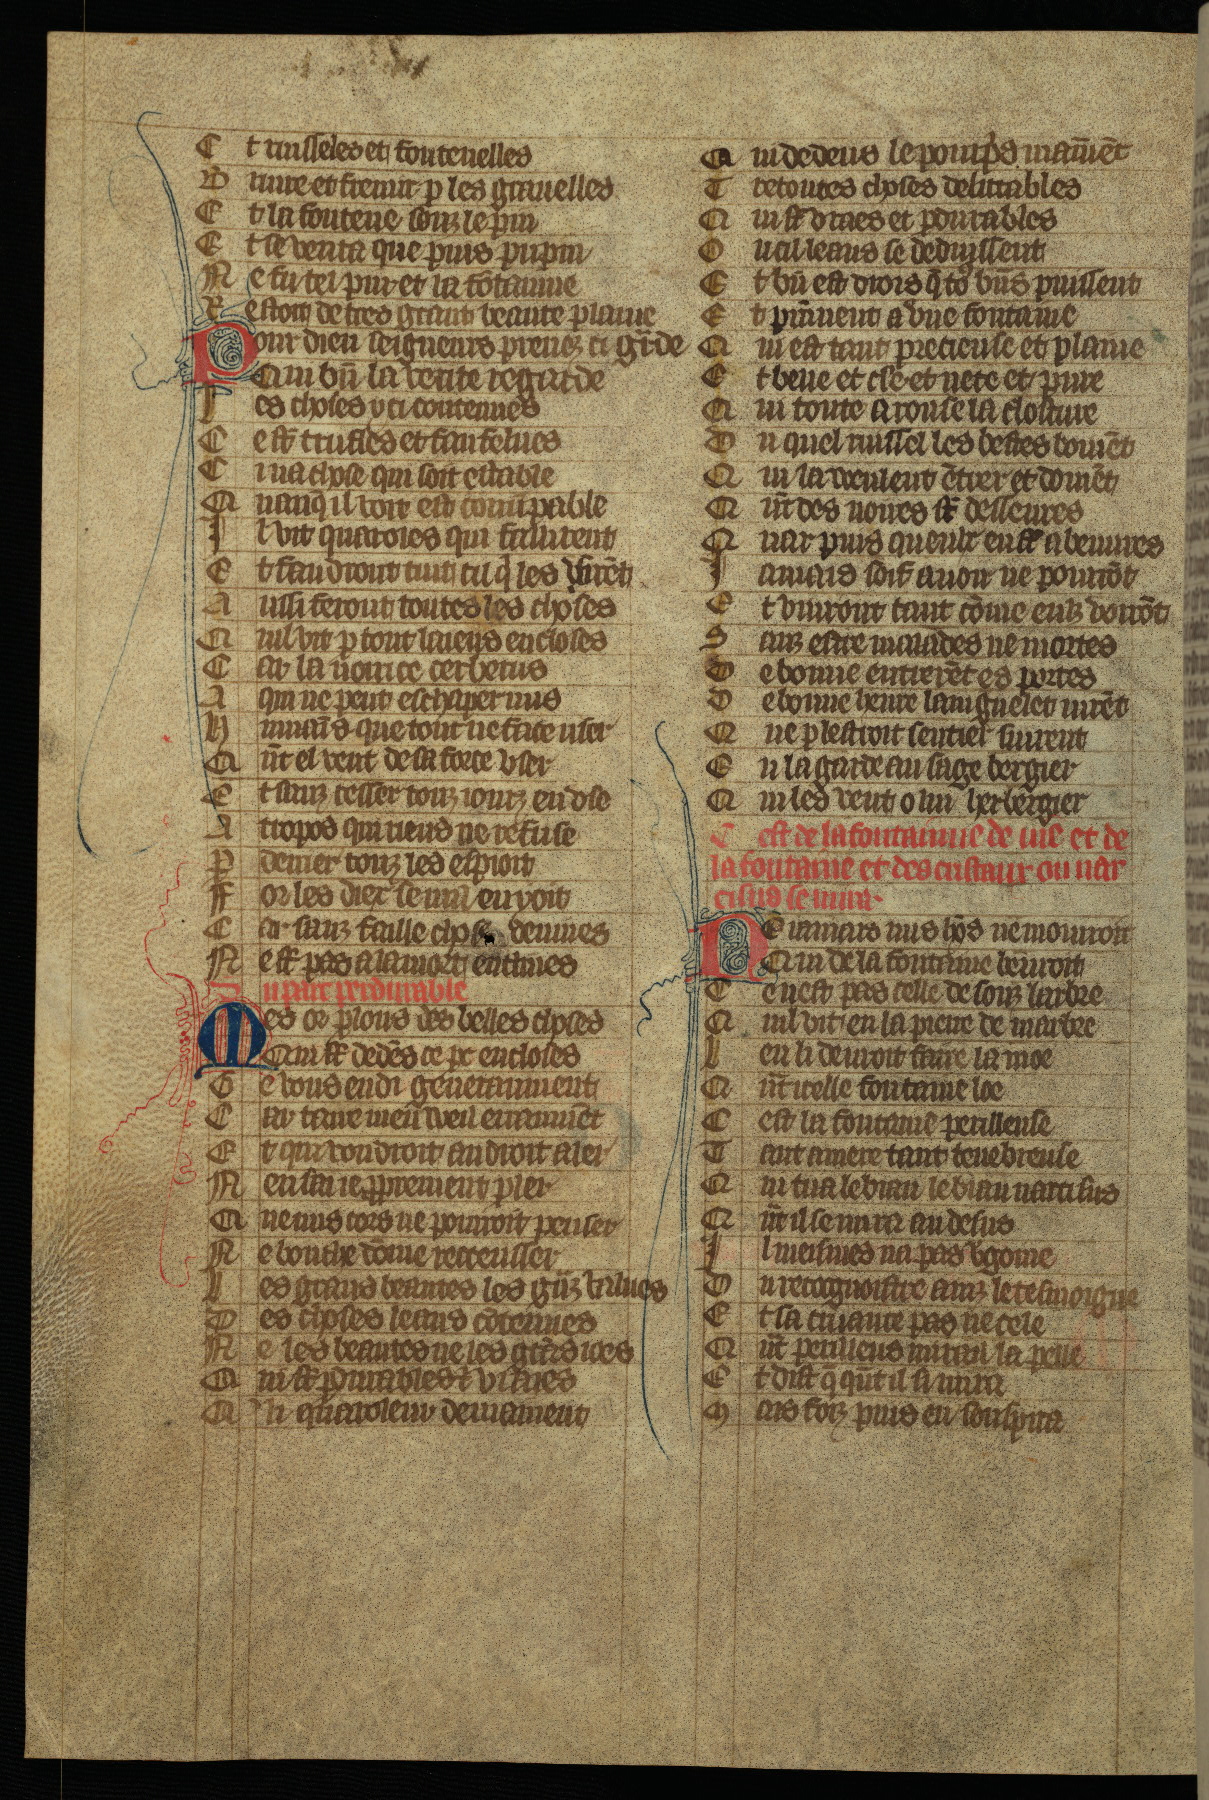 E t ruisseles et fontenelles
B ruire et fremir p les grauelles
E t la fontene souz le pin
E t se venta que puis pupin
N e fu tel pin et la fōtainne
R estoit de tres grant beaute plaine
Pour dieu seigneurs prenez ci garde
Qui bn̄ la verite regarde
L es choses yci contenues
C e st̄ truffles et fanfelues
C i na chose qui soit estable
Q uanq̄ il voit est corrūpable
I l vit quaroles qui fallirent
E t faudront tuit cil q̄ les firēt
A ussi feront toutes les choses
Q uil vit p tout laiens encloses
C ar la norrice cerberus
A qui ne peut eschaper nus
H umais que tout ne face user
Q n̄t el veut de sa force vser
E t sanz cesser touz iourz en vse
A tropos qui riens ne refuse
P derrier touz les espioit
F or les diex se nul en y oit
C ar sanz faille choses deuines
N e st̄ pas a la mort enclines
Du parc perdurable
Mes or plons des belles choses
Qui st̄ dedēs ce pc encloses
G e vous en di generaument
C ar taire men vueil erraumēt
E t qui voudroit au droit aler
N en sai ie pprement pler
Q ne nus cors ne pourroit penser
N e bouche dōme recensser
L es grans beautes les grn̄z values
D es choses leans cōtenues
N e les beautes ne les grās ioies
Q ui st̄ pdurables et vraies
Q li quaroleur demainent
Q ui dedens le pourpris mainnēt
T retoutes choses delitables
Q ui st̄ vraies et pdurables
O nt cil leans se deduyssent
E t bn̄ est drois q̄ to9 bn̄s puissent
E t puisent a vne fontaine
Q ui est tant precieuse et plaine
E t bele et clere et nete et pure
Q ui toute arouse la closture
D u quel ruissel les bestes boiuēt
Q ui la veulent ētrer et doiuēt
Q n̄t des noires st̄ desseurees
Q uar puis quenle en st̄ abeuurees
J amais soif auoir ne pourrōt
E t viuront tant cōme eulz vorrōt
S anz estre malades ne mortes
D e bonne entrerēt es portes
D e bonne heure laignelet virēt
Q ue p lestroit sentier suirent
E n la garde au sage bergier
Q ui les veut o lui herbergier
C est de la fontainne de vie et de
la fontaine et des cristaux ou nar
cisus se mira
Ne iamais nus hōs ne mourroit
Qui de la fontaine beuroit
C e nest pas celle desouz larbre
Q uil vit en la pierre de marbre
L en li deuroit faire la moe
Q n̄t icelle fontaine loe
C est la fontaine perilleuse
T ant amere tant tenebreuse
Q ui tua le biau le biau narcisus
Q n̄t il se mira au desus
I l meismes na pas vgoine
D u recognoistre ainz le tesmoigne
E t sa cruaute pas ne cele
Q n̄t perilleus mirail lapelle
E t dist q̄ qn̄t il si mira
M ais foiz puis en souspira